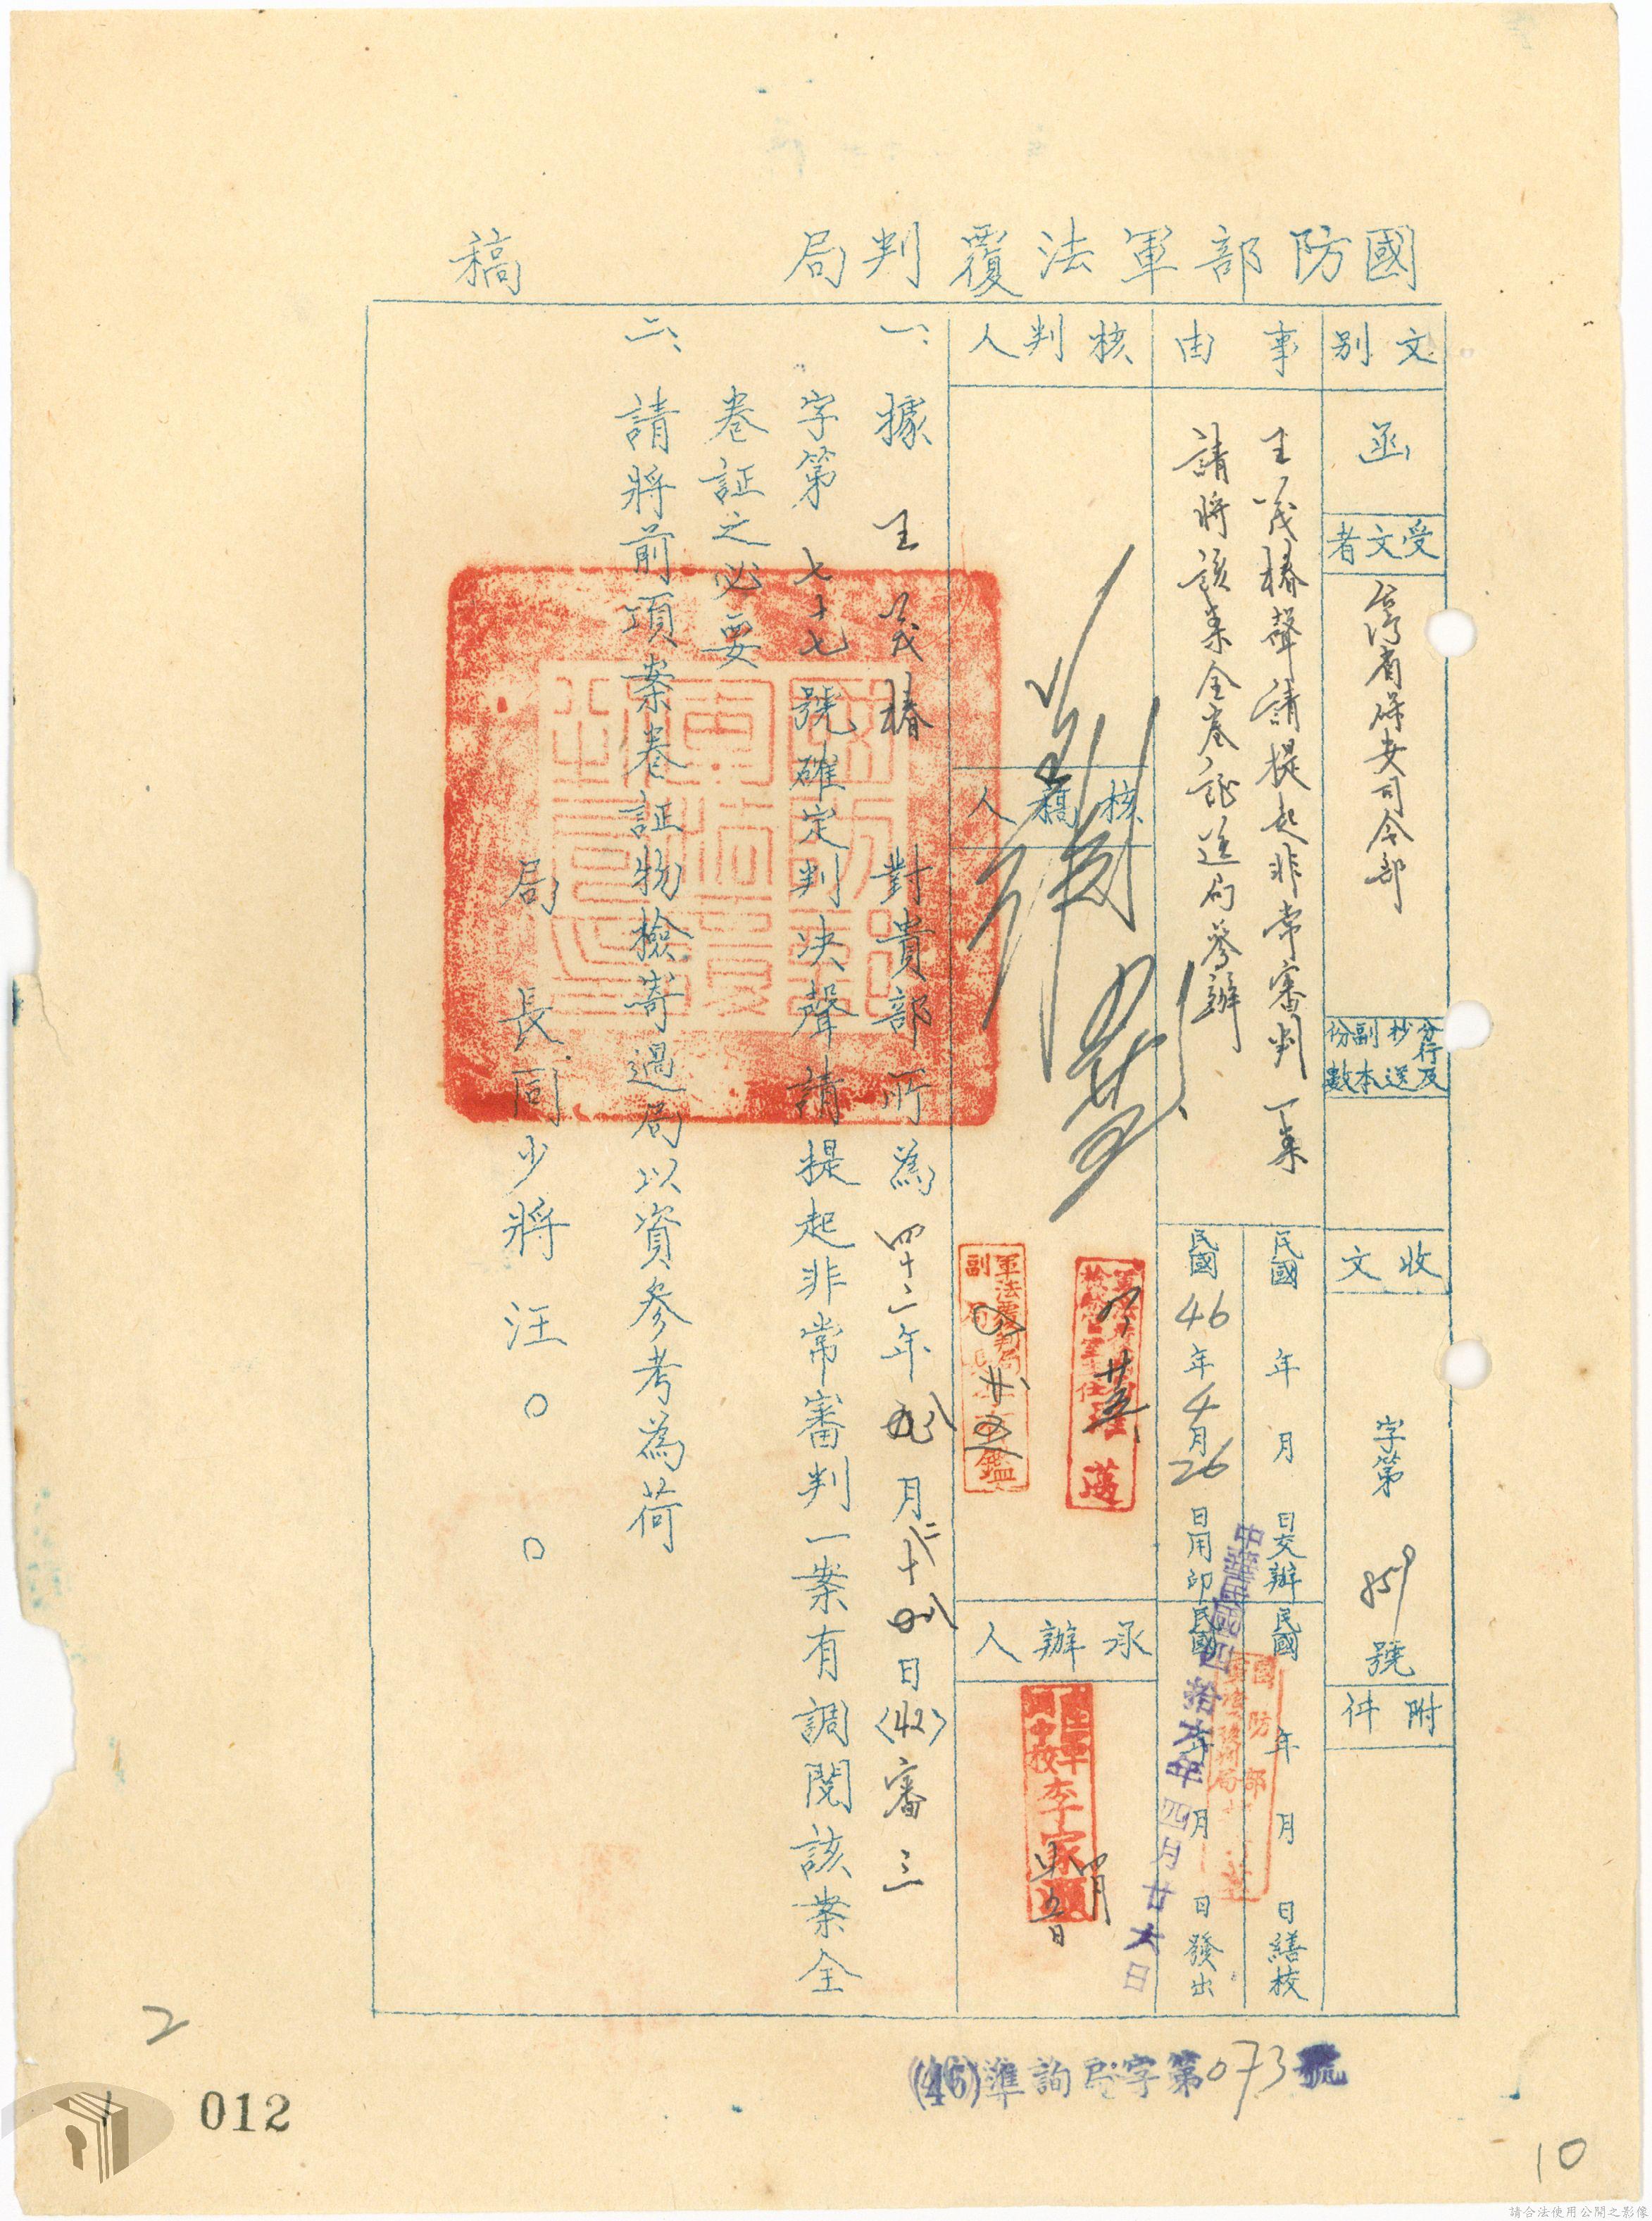 國防部軍法覆判局 稿
文別
函
受文者
台灣省保安司令部
分行及抄送副本份數
收文
字第859號
附件
事由
王義椿聲請提起非常審判一案
請將該案全卷証送局參辦
民國 年 月 日交辦
民國 年 月 日繕校
民國46年4月26日用印
民國 年 月 日發出
中華民國四拾六年四月廿六日
核判人
核稿人
承辦人
李家
一、據 王義椿 對貴部所為四十二年 月 日(42)審三
字第七十七號確定判決聲請提起非常審判一案有調閱該案全
卷証之必要
二、請將前項案卷証物檢寄過局以資參考為荷
局長 少將 汪○○
(46)準詢局字第073號
2
012
10
請合法使用公開之影像